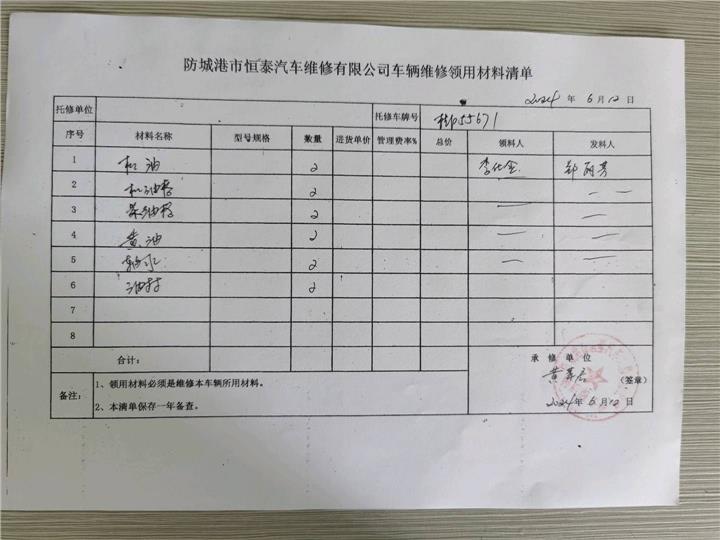 防城港市恒泰汽车维修有限公司车辆维修领用材料清单
2024 年 6 月 12 日
托修单位 托修车牌号 桂P55671
序号 材料名称 型号规格 数量 进货单价 管理费率% 总价 领料人 发料人
1 机油 2 郑丽芳
2 机油格 2 — —
3 柴油格 2 —
4 黄油 2 — —
5 2 — —
6 2
7
8
合计:
承 修 单 位
备注:
1、领用材料必须是维修本车辆所用材料。
(签章)
2、本清单保存一年备查。
2024 年 6 月 12 日